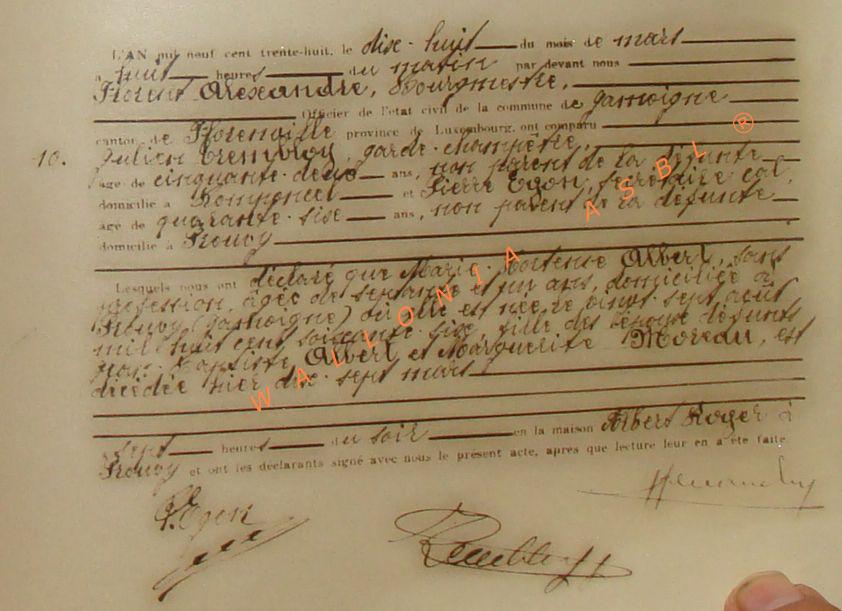 L'AN mil neuf cent trente-huit, le dix-huit du mois de mars
à huit heures du matin par devant nous
Florent Alexandre, Bourgmestre,
Officier de l'état civil de la commune de Jamoigne
canton de Florenville province de Luxembourg, ont comparu
10. Julien Trembloy, garde-champêtre
âgé de cinquante-deux ans, non parent de la défunte
domicilié à Romponcel et Pierre Egon, secrétaire cal,
âgé de quarante-six ans, non parent de la défunte
domicilié à Prouvy
Lesquels nous ont déclaré que Marie Hortense Albert, sans
profession, âgée de septante et un ans, domiciliée à
Prouvy (Jamoigne) où elle est née le vingt-sept août
mil huit cent soixante-six, fille des époux défunts
Jean-Baptiste Albert et Marguerite Moreau, est
décédée hier dix-sept mars
à sept heures du soir en la maison Albert Roger à
Prouvy et ont les déclarants signé avec nous le présent acte, après que lecture leur en a été faite
P. Egon
WALLONIA ASBL ®